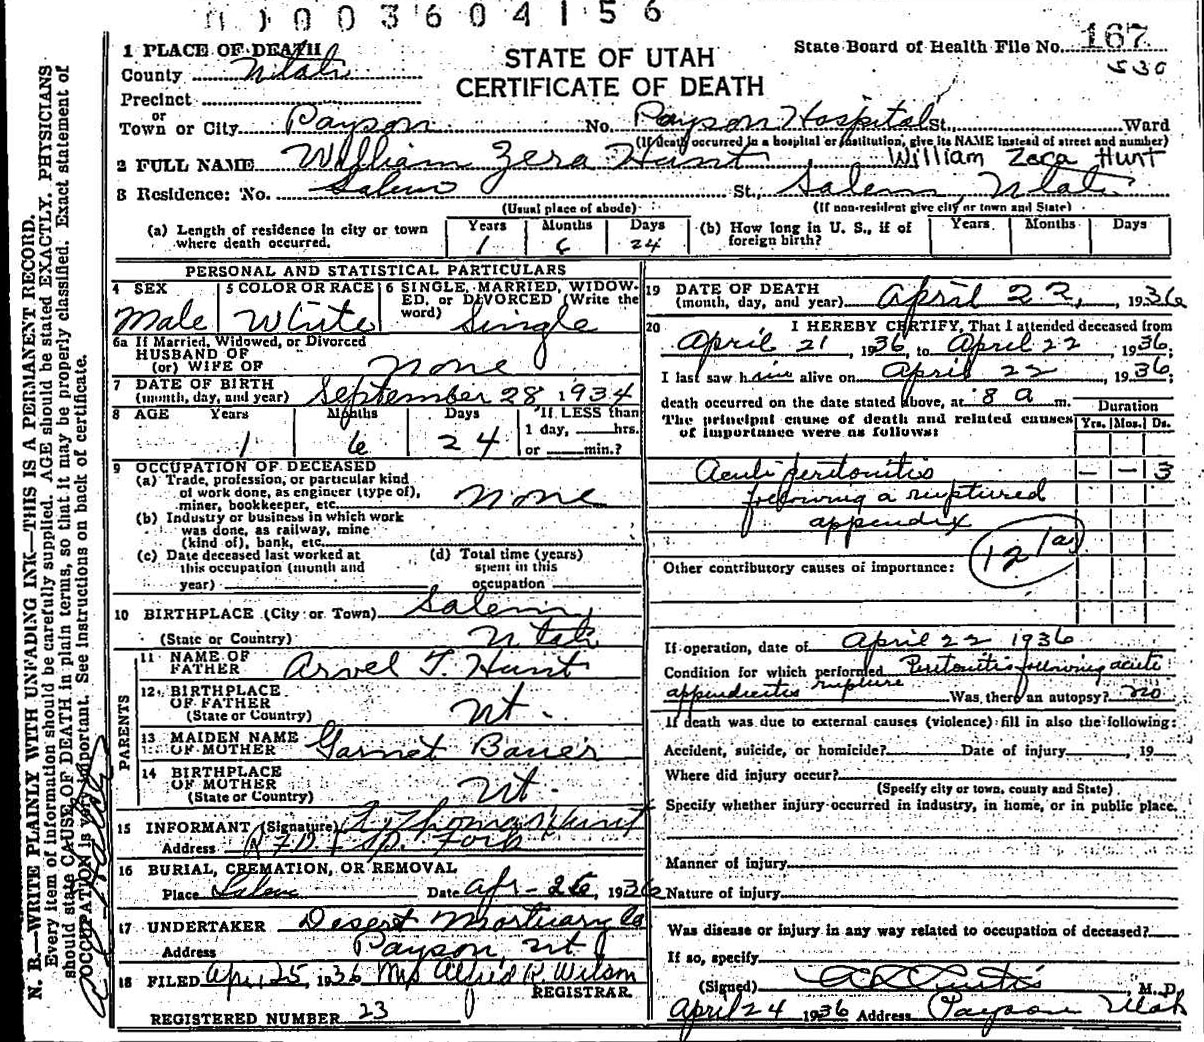 0003604156
1 PLACE OF DEATH
County Utah
Precinct
or
Town or City Payson No. Payson Hospital St. Ward
(If death occurred in a hospital or institution, give its NAME instead of street and number)
2 FULL NAME William Zera Hunt William Zera Hunt
3 Residence: No. Salem St., Salem Utah
(Usual place of abode) (If non-resident give city or town and State)
(a) Length of residence in city or town where death occurred. Years 1 Months 6 Days 24 (b) How long in U. S., if of foreign birth? Years Months Days
STATE OF UTAH
CERTIFICATE OF DEATH
State Board of Health File No. 167
530
PERSONAL AND STATISTICAL PARTICULARS
4 SEX Male
5 COLOR OR RACE White
6 SINGLE, MARRIED, WIDOWED, or DIVORCED (Write the word) Single
6a If Married, Widowed, or Divorced
HUSBAND OF
(or) WIFE OF none
7 DATE OF BIRTH
(month, day, and year) September 28 1934
8 AGE Years 1 Months 6 Days 24 If LESS than 1 day, hrs. or min.?
9 OCCUPATION OF DECEASED
(a) Trade, profession, or particular kind
of work done, as engineer (type of),
miner, bookkeeper, etc. none
(b) Industry or business in which work
was done, as railway, mine
(kind of), bank, etc.
(c) Date deceased last worked at
this occupation (month and
year)
(d) Total time (years)
spent in this
occupation
10 BIRTHPLACE (City or Town) Salem
(State or Country) Utah
PARENTS
11 NAME OF
FATHER Arvel T. Hunt
12 BIRTHPLACE
OF FATHER
(State or Country) Ut.
13 MAIDEN NAME
OF MOTHER Garnet
14 BIRTHPLACE
OF MOTHER
(State or Country) Ut.
15 INFORMANT (Signature) A Thomas Hunt
Address R F D 1 Sp. Fork
16 BURIAL, CREMATION, OR REMOVAL
Place Salem Date Apr - 26, 1936
17 UNDERTAKER Desert Mortuary Co
Address Payson, Ut
18 FILED Apr, 25, 1936 Mrs Alfred R. Wilson
REGISTRAR
REGISTERED NUMBER 23
19 DATE OF DEATH
(month, day, and year) April 22, 1936
20 I HEREBY CERTIFY, That I attended deceased from
April 21, 1936, to April 22, 1936;
I last saw him alive on April 22, 1936;
death occurred on the date stated above, at 8 a m.
The principal cause of death and related causes
of importance were as follows:
Duration
Yrs. Mos. Ds.
Acute peritonitis - - 3
following a ruptured
appendix
Other contributory causes of importance:
121a
If operation, date of April 22 1936
Condition for which performed Peritonitis following acute
appendicitis rupture Was there an autopsy? no
If death was due to external causes (violence) fill in also the following:
Accident, suicide, or homicide? Date of injury , 19
Where did injury occur?
(Specify city or town, county and State)
Specify whether injury occurred in industry, in home, or in public place.
Manner of injury
Nature of injury
Was disease or injury in any way related to occupation of deceased?
If so, specify
(Signed) A L Curtis M. D.
April 24 1936 Address Payson Utah
N. B.—WRITE PLAINLY WITH UNFADING INK—THIS IS A PERMANENT RECORD.
Every item of information should be carefully supplied. AGE should be stated EXACTLY. PHYSICIANS
should state CAUSE OF DEATH in plain terms, so that it may be properly classified. Exact statement of
OCCUPATION is very important. See instructions on back of certificate.